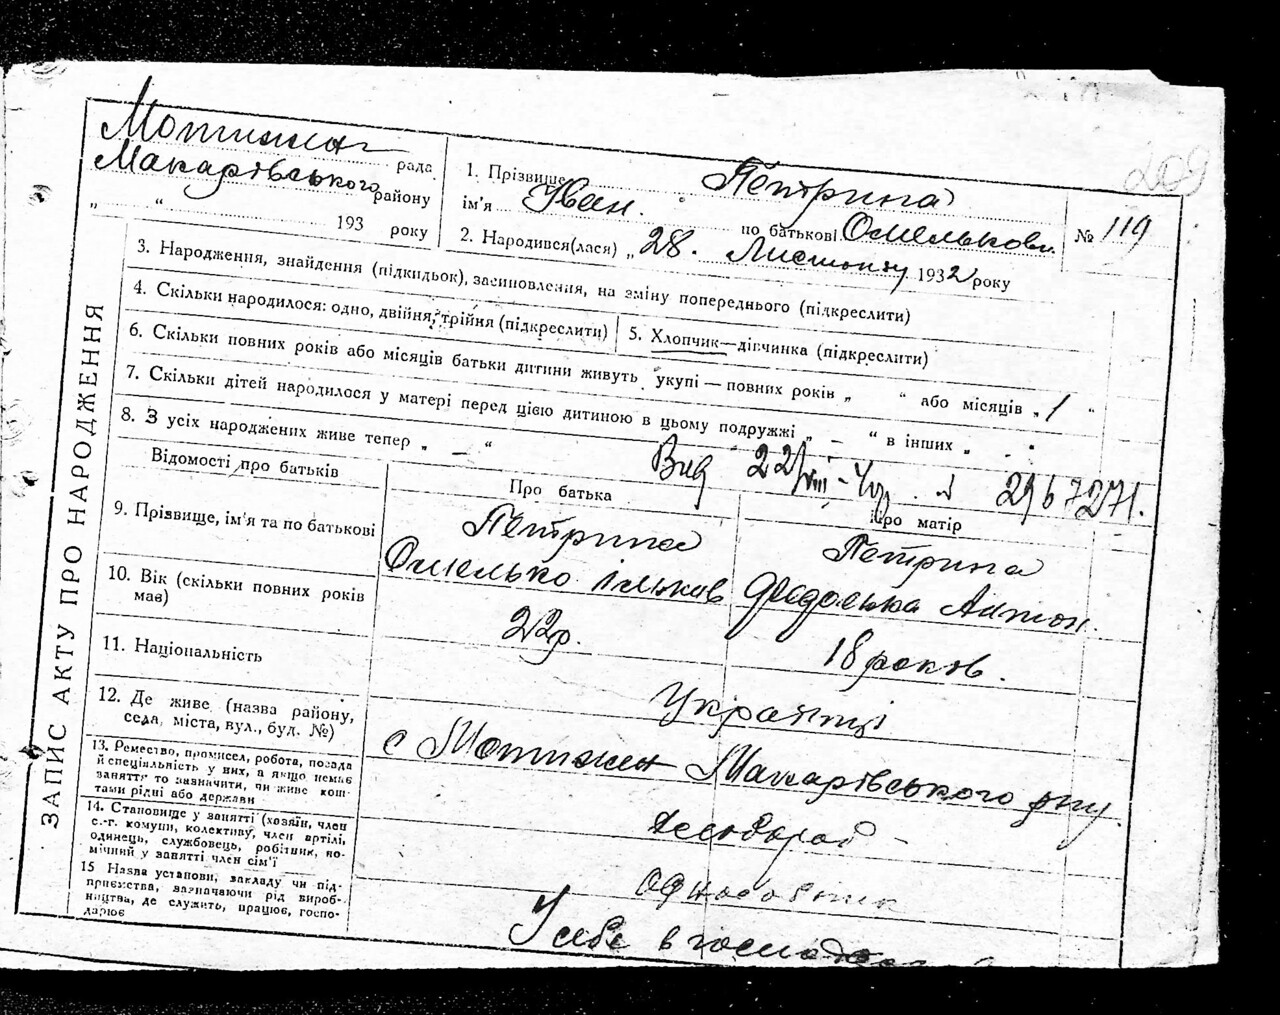 209
Мотижен рада
Макарівського району
„ “ 193 року
1. Прізвище Петрина
ім'я Іван. по батькові Омельков.
№ 119
2. Народився(лася) „28. Листопаду 1932 року
ЗАПИС АКТУ ПРО НАРОДЖЕННЯ
3. Народження, знайдення (підкидьок), засиновлення, на зміну попереднього (підкреслити)
4. Скільки народилося: одно, двійня, трійня (підкреслити)
5. Хлопчик—дівчинка (підкреслити)
6. Скільки повних років або місяців батьки дитини живуть укупі — повних років „ “ або місяців „ 1 “
7. Скільки дітей народилося у матері перед цією дитиною в цьому подружжі „ — “ в інших „ - “
8. З усіх народжених живе тепер „ — “
Вид 22/VIII 2967271.
Відомості про батьків
Про батька
Про матір
9. Прізвище, ім'я та по батькові
Петрина
Омелько Ільков
Петрина
Федоська Антон.
10. Вік (скільки повних років
має)
22р.
18 років.
11. Національність
Українці
12. Де живе (назва району,
села, міста, вул., буд. №)
с Мотижен Макарівського р-ну.
13. Ремество, промисел, робота, посада
й спеціяльність у них, а якщо немає
заняття то зазначити, чи живе кош-
тами рідні або держави
Хлібороб
14. Становище у занятті (хазяїн, член
с.-г. комуни, колективу, член артілі,
одинець, службовець, робітник, по-
мічний у занятті член сім'ї
Одноосібник
15 Назва установи, закладу чи під-
приємства, зазначаючи рід вироб-
ництва, де служить, працює, госпо-
дарює
У себе в господар